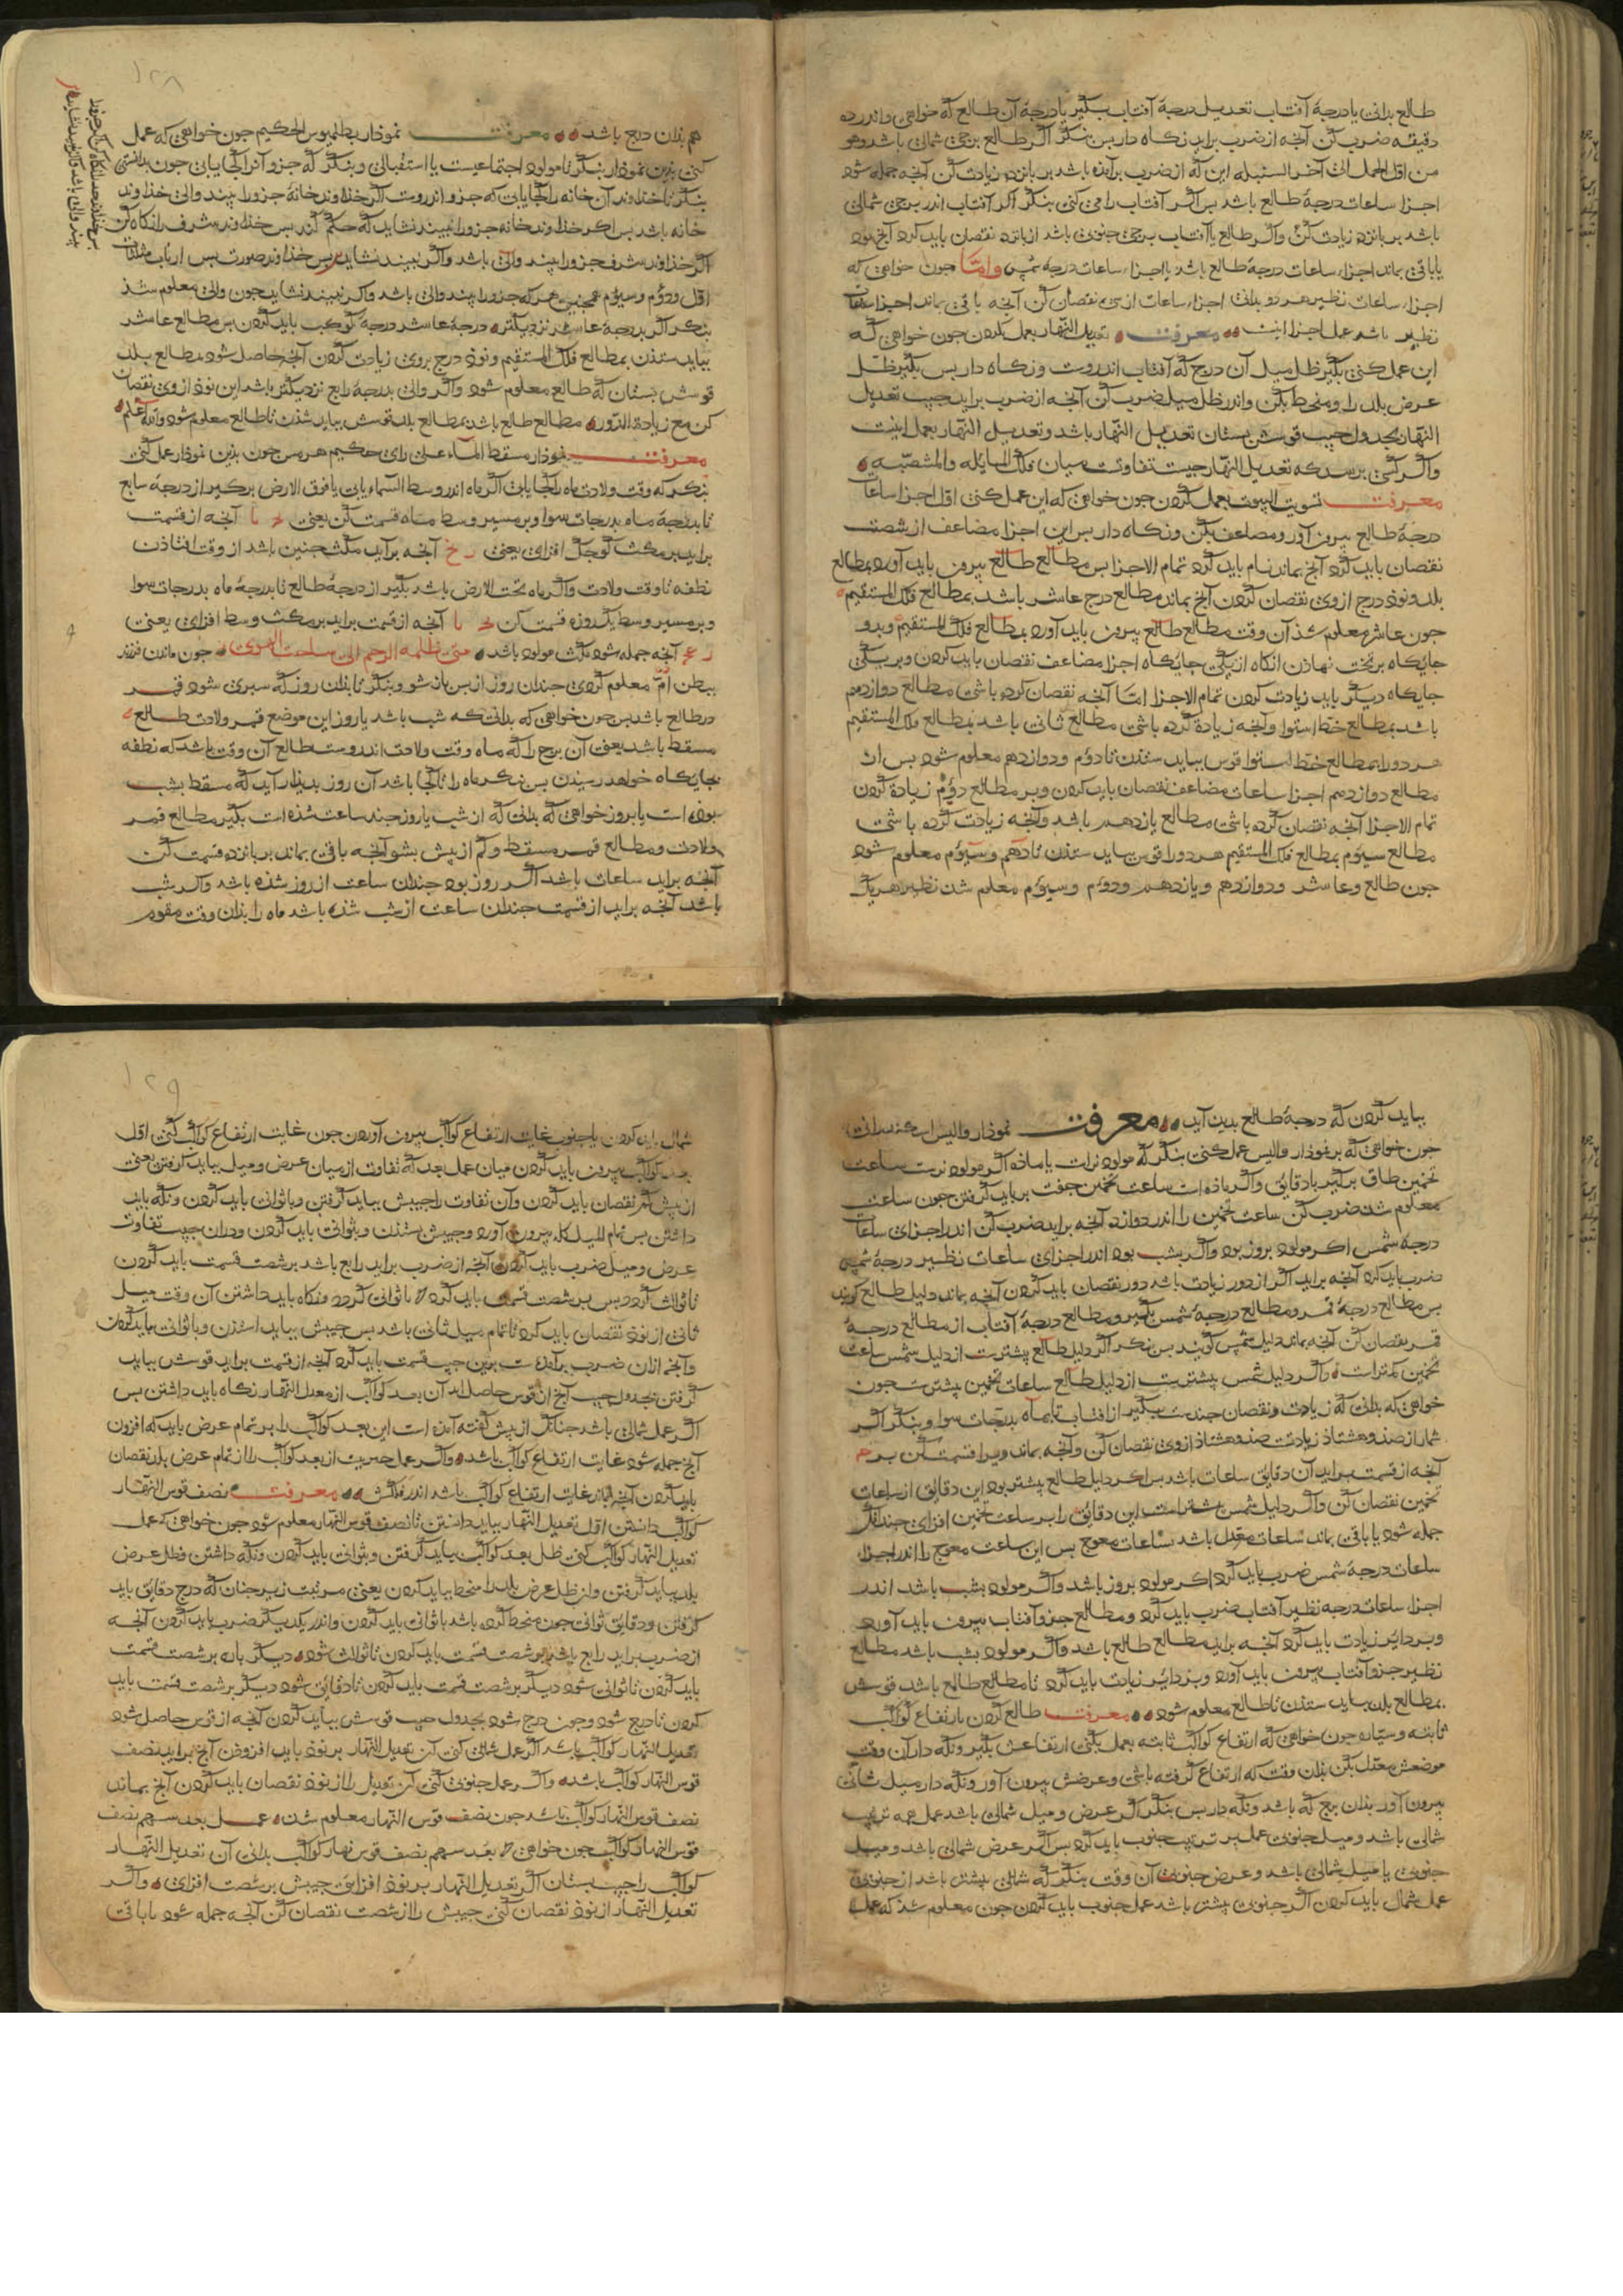 طالع بدانی یا درجهٔ آفتاب تعدیل درجهٔ آفتاب بگیر یا درجهٔ آن طالع که خواهی و اندر ده
دقیقه ضرب کن آنجه از ضرب برآید نکاه دار بس بنکر اگر طالع برجی شمالی باشد و هو
من اول الحمل الی آخر السنبله این که از ضرب برآمذه باشد بر بانزده زیادت کن آنجه جمله شود
اجزاء ساعات درجهٔ طالع باشد بس اگر آفتاب را می کنی بنکر اگر آفتاب اندر برجی شمالی
باشد بر بانزده زیادت کن و اگر طالع یا آفتاب برجی جنوبی باشد از بانزده نقصان باید کرد آنج بود
یا باقی بماند اجزاء ساعات درجهٔ طالع باشد یا اجزاء ساعات درجهٔ شمس و امّا جون خواهی که
اجزاء ساعات نظیر هر دو بدانی اجزاء ساعات از سی نقصان کن آنجه باقی بماند اجزا ساعات
نظیر باشد عمل اجزا اینست معرفت تعدیل النهار بعمل کردن جون خواهی که
این عمل کنی بگیر ظل میل آن درج که آفتاب اندروست و نکاه دار بس بگیر ظل
عرض بلد را و منحط بکن و اندر ظل میل ضرب کن آنجه از ضرب برآید جیب تعدیل
النهار بجدول جیب قوسش بستان تعدیل النهار باشد و تعدیل النهار بعمل اینست
و اگر کسی برسد که تعدیل النهار جیست تفاوتست میان فلک المایله و المنتصبه
معرفت تسویت البیوت بعمل کردن جون خواهی که این عمل کنی اوّل اجزا ساعات
درجهٔ طالع بیرون آور و مضاعف بکن و نکاه دار بس این اجزا مضاعف از شصت
نقصان باید کرد آنج بماند نام باید کرد تمام الاجزا بس مطالع طالع بیرون باید آورد بمطالع
بلد و نود درج ازوی نقصان کردن آنج بماند مطالع درج عاشر باشد بمطالع فلک المستقیم
جون عاشر معلوم شد آن وقت مطالع طالع بیرون باید آورد بمطالع فلک المستقیم و بدو
جایکاه بر تخت نهادن انکاه از یکی جایکاه اجزا مضاعف نقصان باید کردن و بر یکی
جایکاه دیگر باید زیادت کردن تمام الاجزا امّا آنجه نقصان کرده باشی مطالع دوازدهم
باشد بمطالع خط استوا و آنجه زیادة کرده باشی مطالع ثانی باشد بمطالع فلک المستقیم
هر دو را بمطالع خط استوا قوس بباید ستدن تا دوّم و دوازدهم معلوم شود بس از
مطالع دوازدهم اجزا ساعات مضاعف نقصان باید کردن و بر مطالع دوّم زیادة کردن
تمام الاجزا آنجه نقصان کرده باشی مطالع یازدهم باشد و آنجه زیادت کرده باشی
مطالع سیوم بمطالع فلک المستقیم هر دو را قوس بباید ستدن تا دهم و سیوم معلوم شود
جون طالع و عاشر و دوازدهم و یازدهم و دوّم و سیوم معلم شد نظیر هر یک
هم بدان درج باشد معرفت نموذار بطلمیوس الحکیم جون خواهی که عمل
کنی بدین نموذار بنکر تا مولود اجتماعیست یا استقبالی و بنکر که جزو آنرا کجا یابی جون بدانستی
بنکر تا خذاوند آن خانه را کجا یابی که جزو اندروست اگر خذاوند خانهٔ جزو را بیند والی خذاوند
خانه باشد بس اکر خذاوند خانه جزو را نبیند نشاید که حکم کند بس خذاوند شرف را نکاه کن
اگر خذاوند شرف جزو را بیند والی باشد و اگر نبیند نشاید بس خذاوند صورت بس ارباب مثلثات
اوّل و دوّم و سیوم همجنین هر که جزو را بیند والی باشد و اکر نبیند نشاید جون والی معلوم شد
بنکر اگر بدرجهٔ عاشر نزدیکتر درجهٔ عاشر درجهٔ کوکب باید کردن بس مطالع عاشر
بباید ستدن بمطالع فلک المستقیم و نود درج بروی زیادت کردن آنجه حاصل شود بمطالع بلد
قوسش بستان که طالع معلوم شود و اگر والی بدرجهٔ رابع نزدیکتر باشد این نود ازوی نقصان
کن مع زیادة الدور مطالع طالع باشد بمطالع بلد قوس بباید ستدن تا طالع معلوم شود والله اعلم
معرفت نموذار مسقط الماء علی رای حکیم هرمس جون بدین نموذار عمل کنی
بنکر که وقت ولادت ماه را کجا یابی اگر ماه اندر وسط السماء یابی یا فوق الارض برکیر از درجهٔ سابع
تا بدرجهٔ ماه بدرجات سوا و بر مسیر وسط ماه قسمت کن یعنی آنجه از قسمت
برآید بر مکث کوجک افزای یعنی آنجه برآید مکث جنین باشد از وقت افتاذن
نطفه تا وقت ولادت و اگر ماه تحت الارض باشد بگیر از درجهٔ طالع تا بدرجهٔ ماه بدرجات سوا
و بر مسیر وسط یک روزه قسمت کن آنجه از قسمت برآید بر مکث وسط افزای یعنی
آنجه جمله شود مکث مولود باشد جون ماندن فرزند
ببطن امّ معلوم کردی جندان روز از بس باز شو و بنکر تا بذان روز که سبری شود قمر
در طالع باشد بس جون خواهی که بدانی که شب باشد یا روز این موضع قمر ولادت طالع
مسقط باشد یعنی آن برج را که ماه وقت ولادت اندروست طالع آن وقت باشد که نطفه
بجایکاه خواهد رسیدن بس بنکر ماه را تا کجا باشد آن روز بدیذار آید که مسقط بشب
بوده است یا بروز خواهی که بدانی که از شب یا روز جند ساعت شده است بگیر مطالع قمر
ولادت و مطالع قمر مسقط و کم از بیش بشو آنجه باقی بماند بر بانزده قسمت کن
آنجه برآید ساعات باشد اگر روز بود جندان ساعت از روز شذه باشد و اگر شب
باشد آنجه برآید از قسمت جندان ساعت از شب شذه باشد ماه را بذان وقت مقوم
بباید کردن که درجهٔ طالع بدید آید معرفت نموذار والیس
جون خواهی که بر نموذار والیس عمل کنی بنکر که مولود نراست یا ماذه اگر مولود نرست ساعت
تخمین طاق برگیر با دقایق و اگر ماذه است ساعت تخمین جفت بر باید گرفتن جون ساعت
معلوم شد ضرب کن ساعت تخمین را اندر دوازده آنجه برآید ضرب کن اندر اجزای ساعات
درجهٔ شمس اکر مولود بروز بود و اگر بشب بود اندر اجزای ساعات نظیر درجهٔ شمس
ضرب باید کرد آنجه برآید اگر از دور زیادت باشد دور نقصان باید کردن آنجه بماند دلیل طالع گویند
بس مطالع درجهٔ قمر و مطالع درجهٔ شمس بگیر و مطالع درجهٔ آفتاب از مطالع درجهٔ
قمر نقصان کن آنجه بماند دلیل شمس گویند بس بنکر اگر دلیل طالع بیشترست از دلیل شمس ساعت
تخمین کمتر است و اگر دلیل شمس بیشترست از دلیل طالع ساعات تخمین بیشتر ست جون
خواهی که بدانی که زیادت و نقصان جندست بگیر از آفتاب تا بماه بدرجات سوا و بنکر اگر
شمار از صد و هشتاد زیادتست صد و هشتاد ازوی نقصان کن و آنجه بماند ویرا قسمت کن بر
آنجه از قسمت برآید آن دقایق ساعات باشد بس اکر دلیل طالع بیشتر بود این دقایق از ساعات
تخمین نقصان کن و اگر دلیل شمس بیشتر است این دقایق را بر ساعت تخمین افزای جندانک
جمله شود یا باقی بماند ساعات معدل باشد ساعات معوج بس این ساعت معوج را اندر اجزاء
ساعات درجهٔ شمس ضرب باید کرد اکر مولود بروز باشد و اگر مولود بشب باشد اندر
اجزاء ساعات درجه نظیر آفتاب ضرب باید کرد و مطالع جزو آفتاب بیرون باید آورد
و بر دایر زیادت باید کرد آنجه برآید مطالع طالع باشد و اگر مولود بشب باشد مطالع
نظیر جزو آفتاب بیرون باید آورد و بر دایر زیادت باید کرد تا مطالع طالع باشد قوسش
بمطالع بلد بباید ستدن تا طالع معلوم شود معرفت طالع کردن بارتفاع کواکب
ثابته و سیّاره جون خواهی که ارتفاع کواکب ثابته بعمل بکنی ارتفاعش بگیر و نکه دار آن وقت
موضعش معدل بکن بذان وقت که ارتفاع گرفته باشی و عرضش بیرون آور و نکه دار میل ثانی
بیرون آور بذان برج که باشد و نکه دار بس بنکر اگر عرض و میل شمالی باشد عمل همه ترتیب
شمالی باشد و میل جنوبی عمل بر ترتیب جنوب باید کرد بس اگر عرض شمالی باشد و میل
جنوبی یا میل شمالی باشد و عرض جنوبی آن وقت بنکر که شمالی بیشتر باشد از جنوبی
عمل شمال باید کردن اگر جنوبی بیشتر باشد عمل جنوب باید کردن جون معلوم شد که عمل
شمال باید کردن یا جنوب غایت ارتفاع کواکب بیرون آوردن جون غایت ارتفاع کواکب کنی اوّل
بعد کواکب بیرون باید کردن میان عمل بعد که تفاوت از میان عرض و میل بباید گرفتن یعنی
از بیش کمتر نقصان باید کردن و آن تفاوت را جیبش بباید گرفتن و با ثوانی باید کردن و نکه باید
داشتن بس تمام المیل کله بیرون آورد و جیبش ستدن و بثوانی باید کردن و در آن جیب تفاوت
عرض و میل ضرب باید کردن آنجه از ضرب برآید رابع باشد بر شصت قسمت باید کردن
تا ثوالث گردد بس بر شصت قسمت باید کرد تا ثوانی گردد و نکاه باید داشتن آن وقت میل
ثانی از نود نقصان باید کرد تا تمام میل ثانی باشد بس جیبش بباید استدن و با ثوانی باید کردن
و آنجه از آن ضرب برآمدست برین جیب قسمت باید کرد آنجه از قسمت برآید قوسش بباید
گرفتن بجدول جیب آنج از قوس حاصل آید آن بعد کواکب از معدل النهار نکاه باید داشتن بس
اگر عمل شمالی باشد جنانک از بیش گفته آمده است این بعد کواکب را بر تمام عرض باید که افزون
آنج جمله شود غایت ارتفاع کواکب باشد و اگر عمل جنوبیست از بعد کواکب را از تمام عرض بلد نقصان
باید کردن آنجه بماند غایت ارتفاع کواکب باشد اندر فلکش معرفت نصف قوس النهار
کواکب دانستن اوّل تعدیل النهار بباید دانستن تا نصف قوس النهار معلوم شود جون خواهی که عمل
تعدیل النهار کواکب کنی ظل بعد کواکب بباید گرفتن و بثوانی باید کردن و نکه داشتن و ظل عرض
بلد بباید گرفتن و از ظل عرض بلد را منحط بباید کردن یعنی مرتبت زیر جنان که درج دقایق باید
گرفتن و دقایق ثوانی جون منحط کرده باشد با ثوانی باید کردن و اندر یکدیگر ضرب باید کردن آنجه
از ضرب برآید رابع باشد بر شصت قسمت باید کردن تا ثوالث شود دیگر باره بر شصت قسمت
باید کردن تا ثوانی شود دیگر بر شصت قسمت باید کردن تا دقایق شود دیگر بر شصت قسمت باید
کردن تا دریج شود و جون درج شود بجدول جیب قوسش بباید کردن آنجه از قوس حاصل شود
تعدیل النهار کواکب باشد اگر عمل شمالی کنی آن تعدیل النهار بر نود باید افزودن آنج برآید نصف
قوس النهار کواکب باشد و اگر عمل جنوبی کنی آن تعدیل را از نود نقصان باید کردن آنج بماند
نصف قوس النهار کواکب باشد جون نصف قوس النهار معلوم شد عمل بعد سهم نصف
قوس النهار کواکب جون خواهی بعد سهم نصف قوس نهار کواکب بدانی آن تعدیل النهار
کواکب را جیب بستان اگر تعدیل النهار بر نود افزائی جیبش بر شصت افزای و اگر
تعدیل النهار از نود نقصان کنی جیبش را از شصت نقصان کن آنجه جمله شود یا باقی